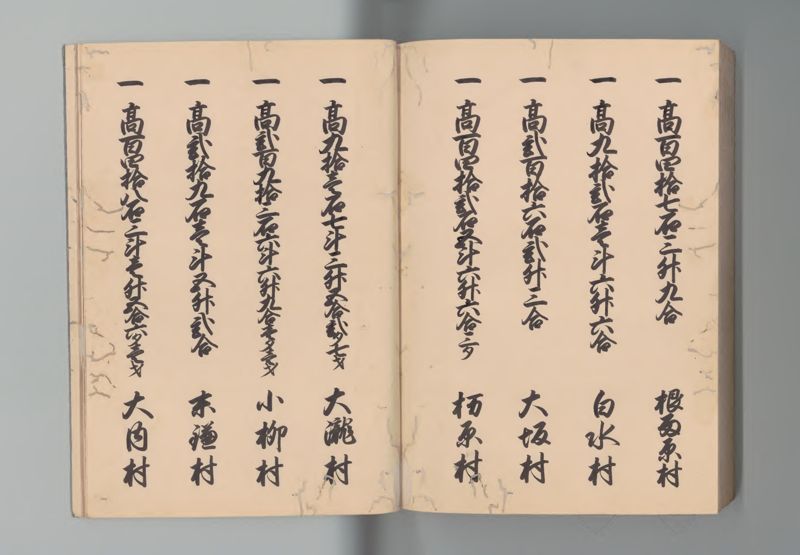 一 高百四拾七石三升九合 根雨原村
一 高九拾弐石壱斗六升六合 白水村
一 高弐百拾六石弐升三合 大坂村
一 高百四拾弐石五斗六升六合三夕 栃原村
一 高九拾壱石七斗三升五合弐夕七才 大瀧村
一 高弐百九拾三石六斗六升九合壱夕壱才 小柳村
一 高弐拾九石壱斗五升弐合 末鎌村
一 高百四拾八石三斗壱升五合六夕壱才 大内村